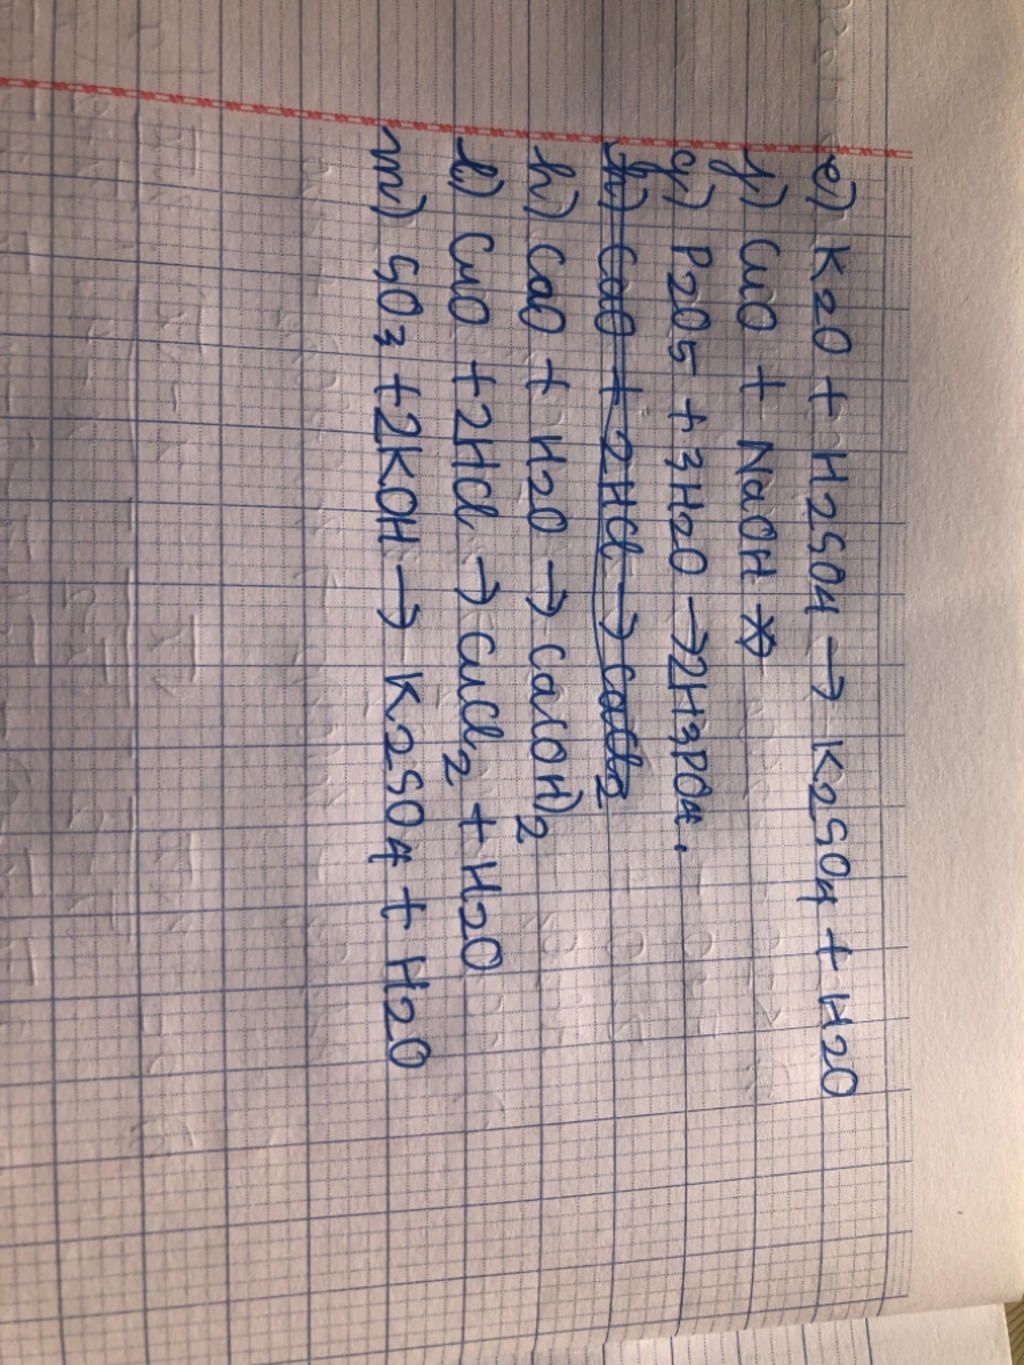 e) K2O + H2SO4 → K2SO4 + H2O
f) CuO + NaOH ↛
g) P2O5 + 3H2O → 2H3PO4.
h) CaO + 2HCl → CaCl2
h) CaO + H2O → Ca(OH)2
l) CuO + 2HCl → CuCl2 + H2O
m) SO3 + 2KOH → K2SO4 + H2O